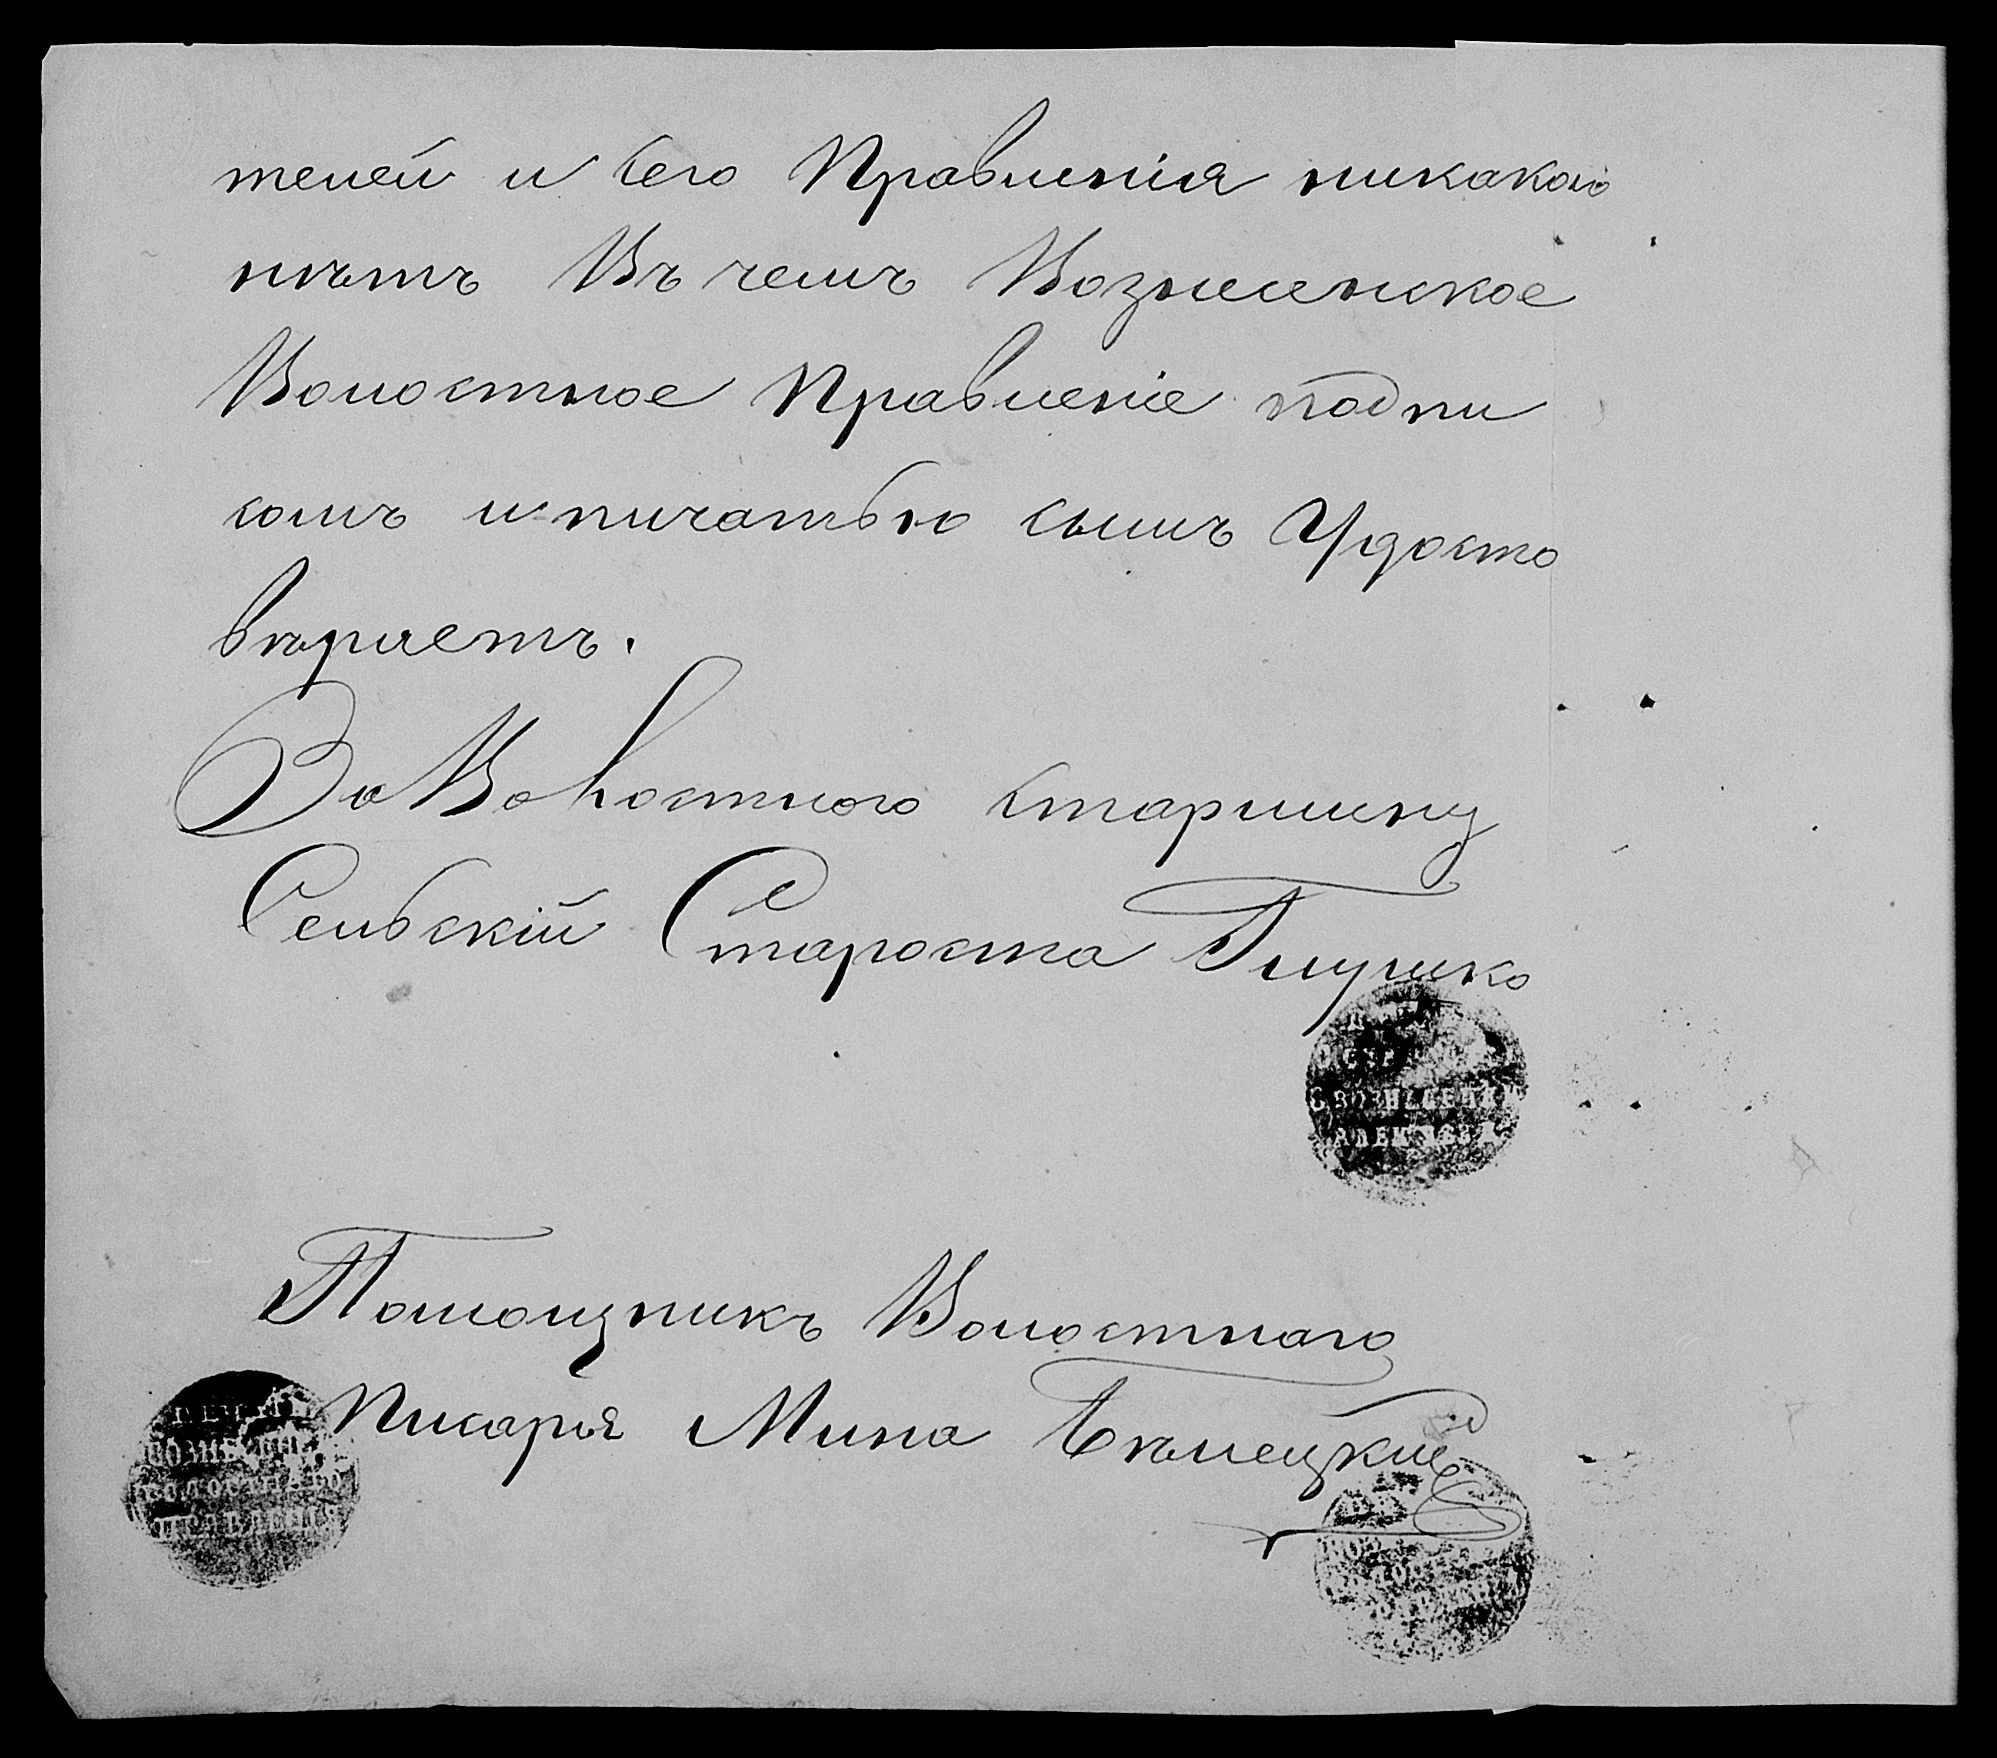 телей и сего Правленія никакого
нѣтъ Въ чемъ Вознесенское
Волостное Правленіе подпи
сомъ и пичатью симъ Удосто
вѣряетъ.
За Волостного старшину
Сельскій Староста Глушко
Помощникъ Волостного
Писаря Мина Бѣлецкій
ВОЛОСТНАГО
ПРАВЛЕНІЯ